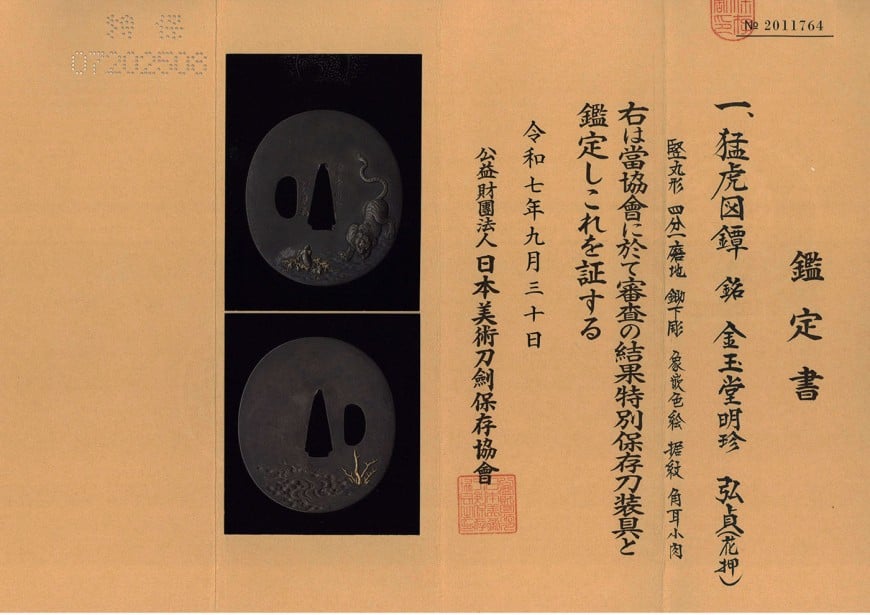 № 2011764
鑑定書
一、猛虎図鐔 銘 金玉堂明珍 弘貞(花押)
竪丸形 四分一磨地 鋤下彫 象嵌色絵 据紋 角耳小肉
右は當協會に於て審査の結果特別保存刀装具と
鑑定しこれを証する
令和七年九月三十日
公益財團法人 日本美術刀劍保存協會
07202508